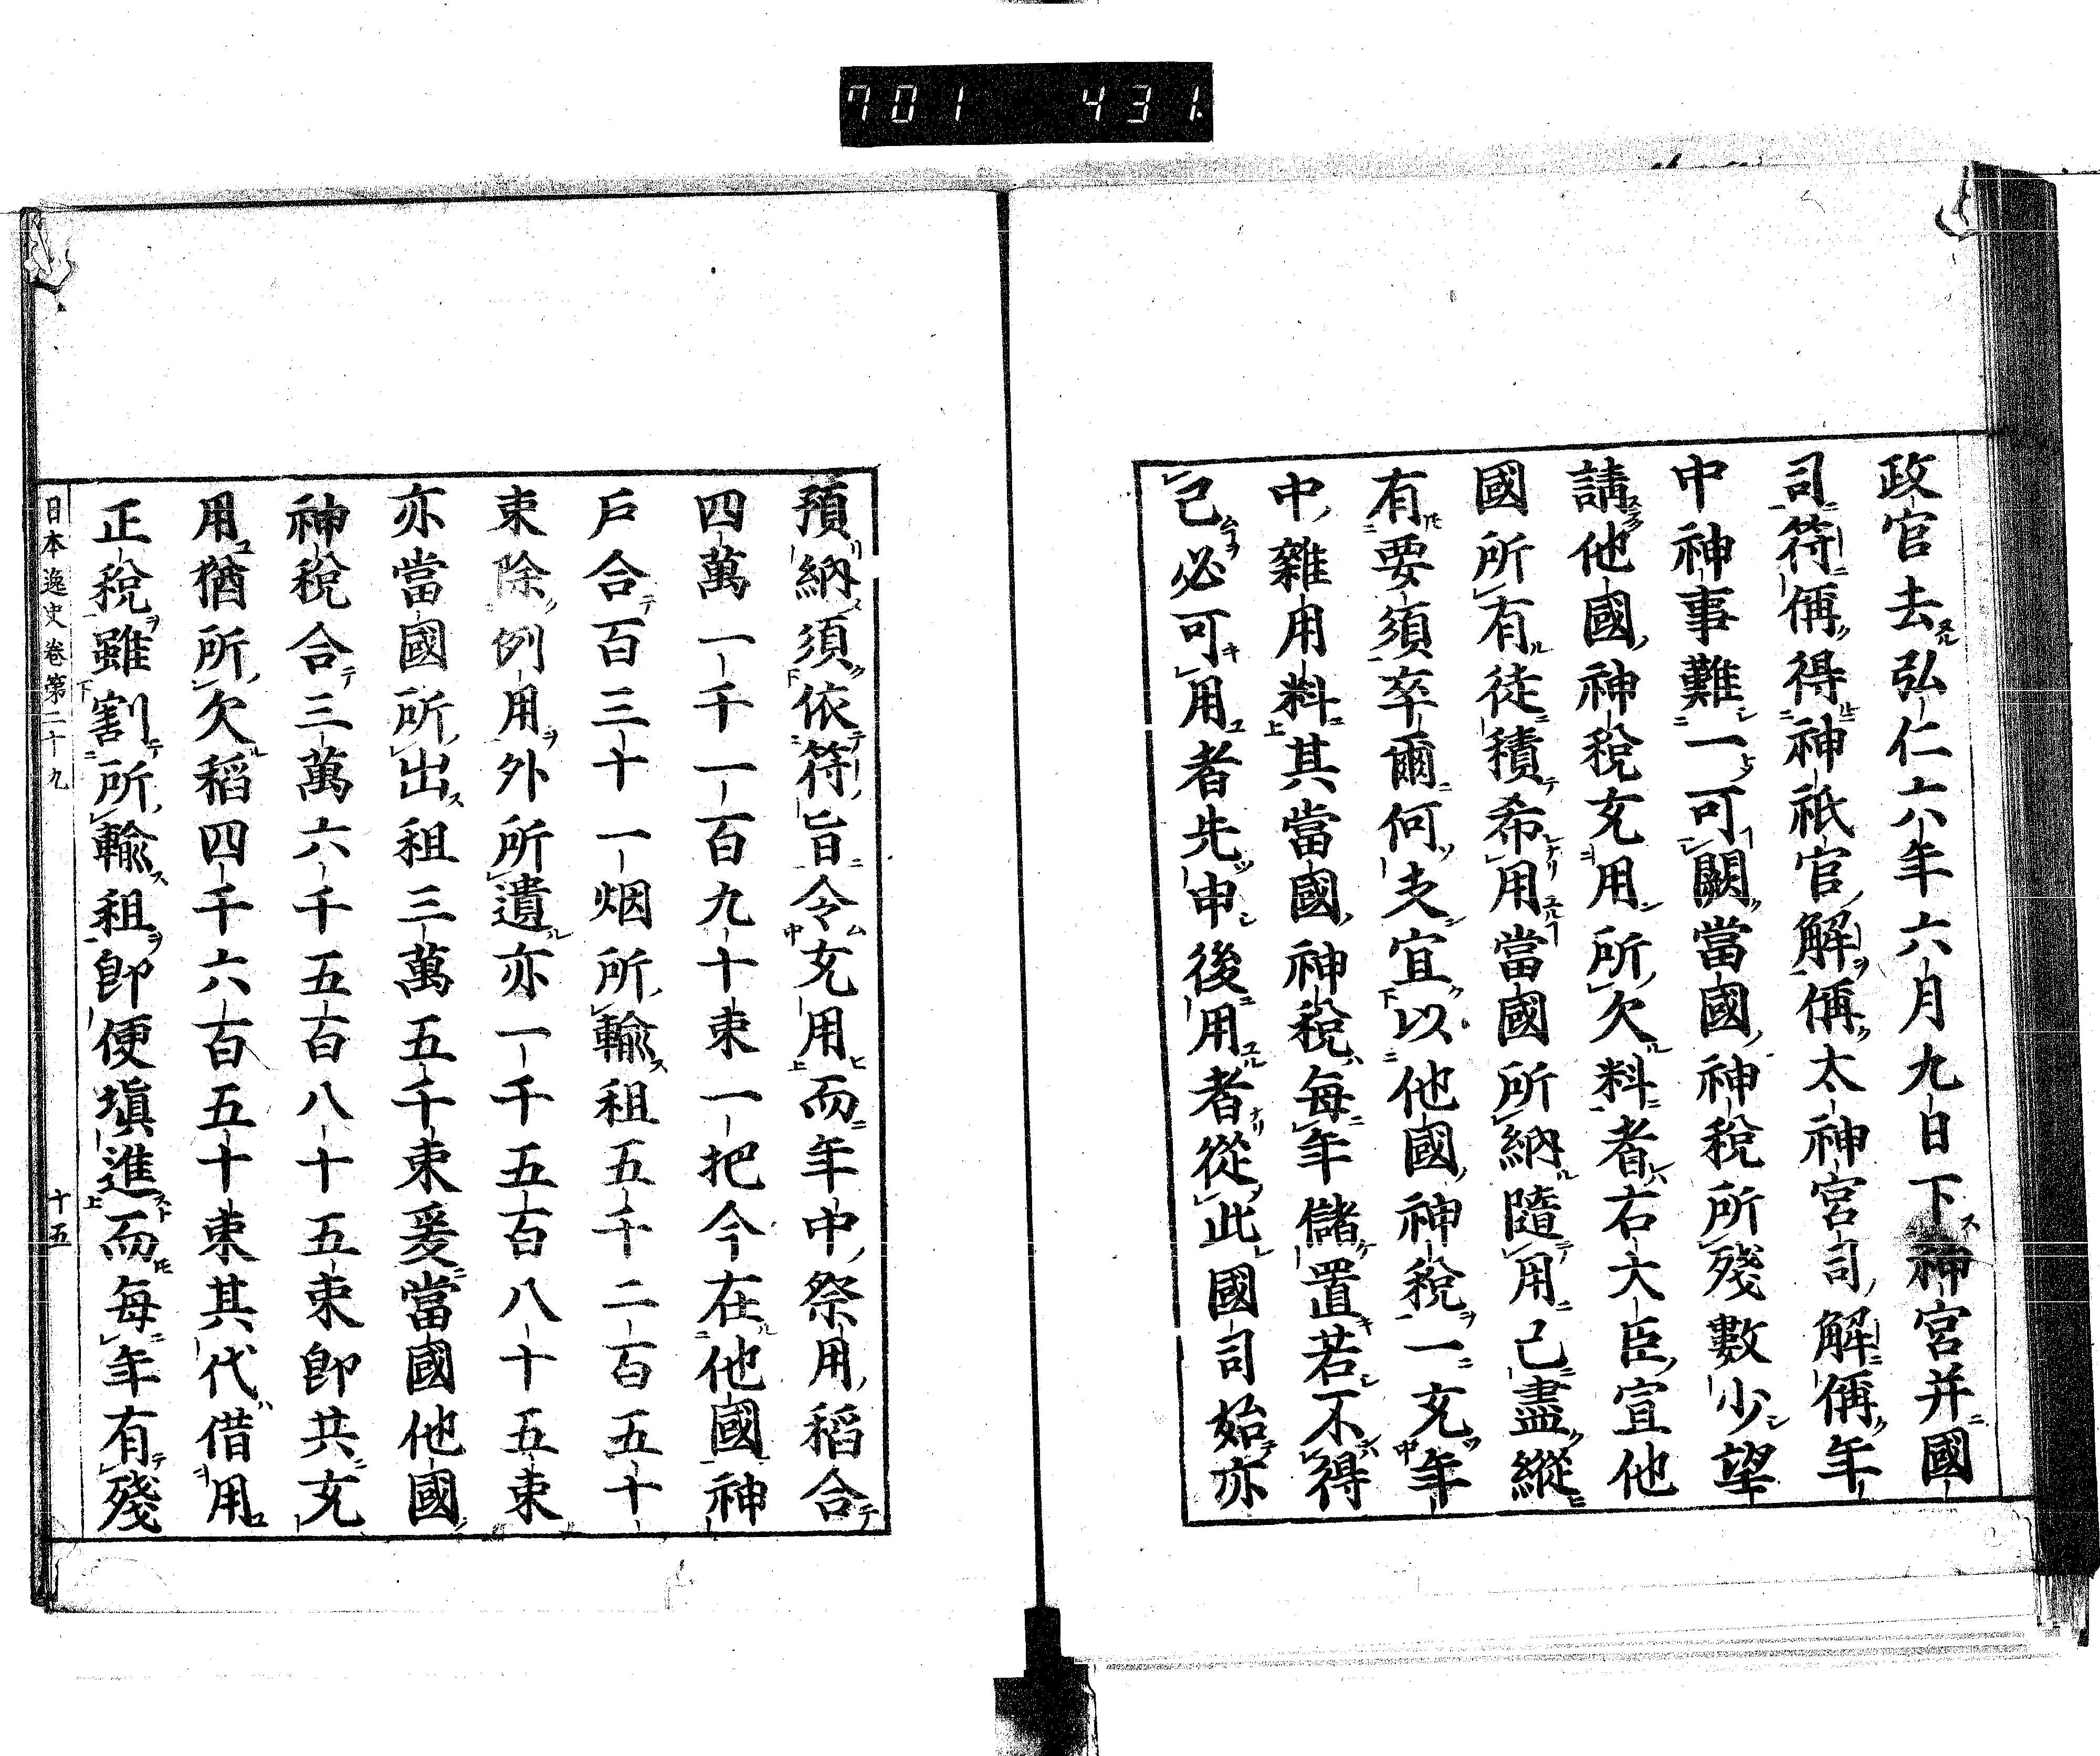 701 431
政官去弘仁六年六月九日下神宮并國
司符偁得神祇官解偁太神宮司解偁年
中神事難一可闕當國神税所殘數少望
請他國神税充用所欠料者右大臣宣他
國所有徒積希用當國所納隨用已盡縱
有要須卒爾何支宜以他國神税一充年
中雜用料其當國神税每年儲置若不得
已必可用者先申後用者從此國司始亦
預納須依符旨令充用而年中祭用稻合
四萬一千一百九十束一把今在他國神
戶合百三十一烟所輸租五千二百五十
束除例用外所遺亦一千五百八十五束
亦當國所出租三萬五千束爰當國他國
神税合三萬六千五百八十五束卽共充
用猶所欠稻四千六百五十束其代借用
正税雖割所輸租卽便塡進而每年有殘
日本逸史卷第二十九 十五